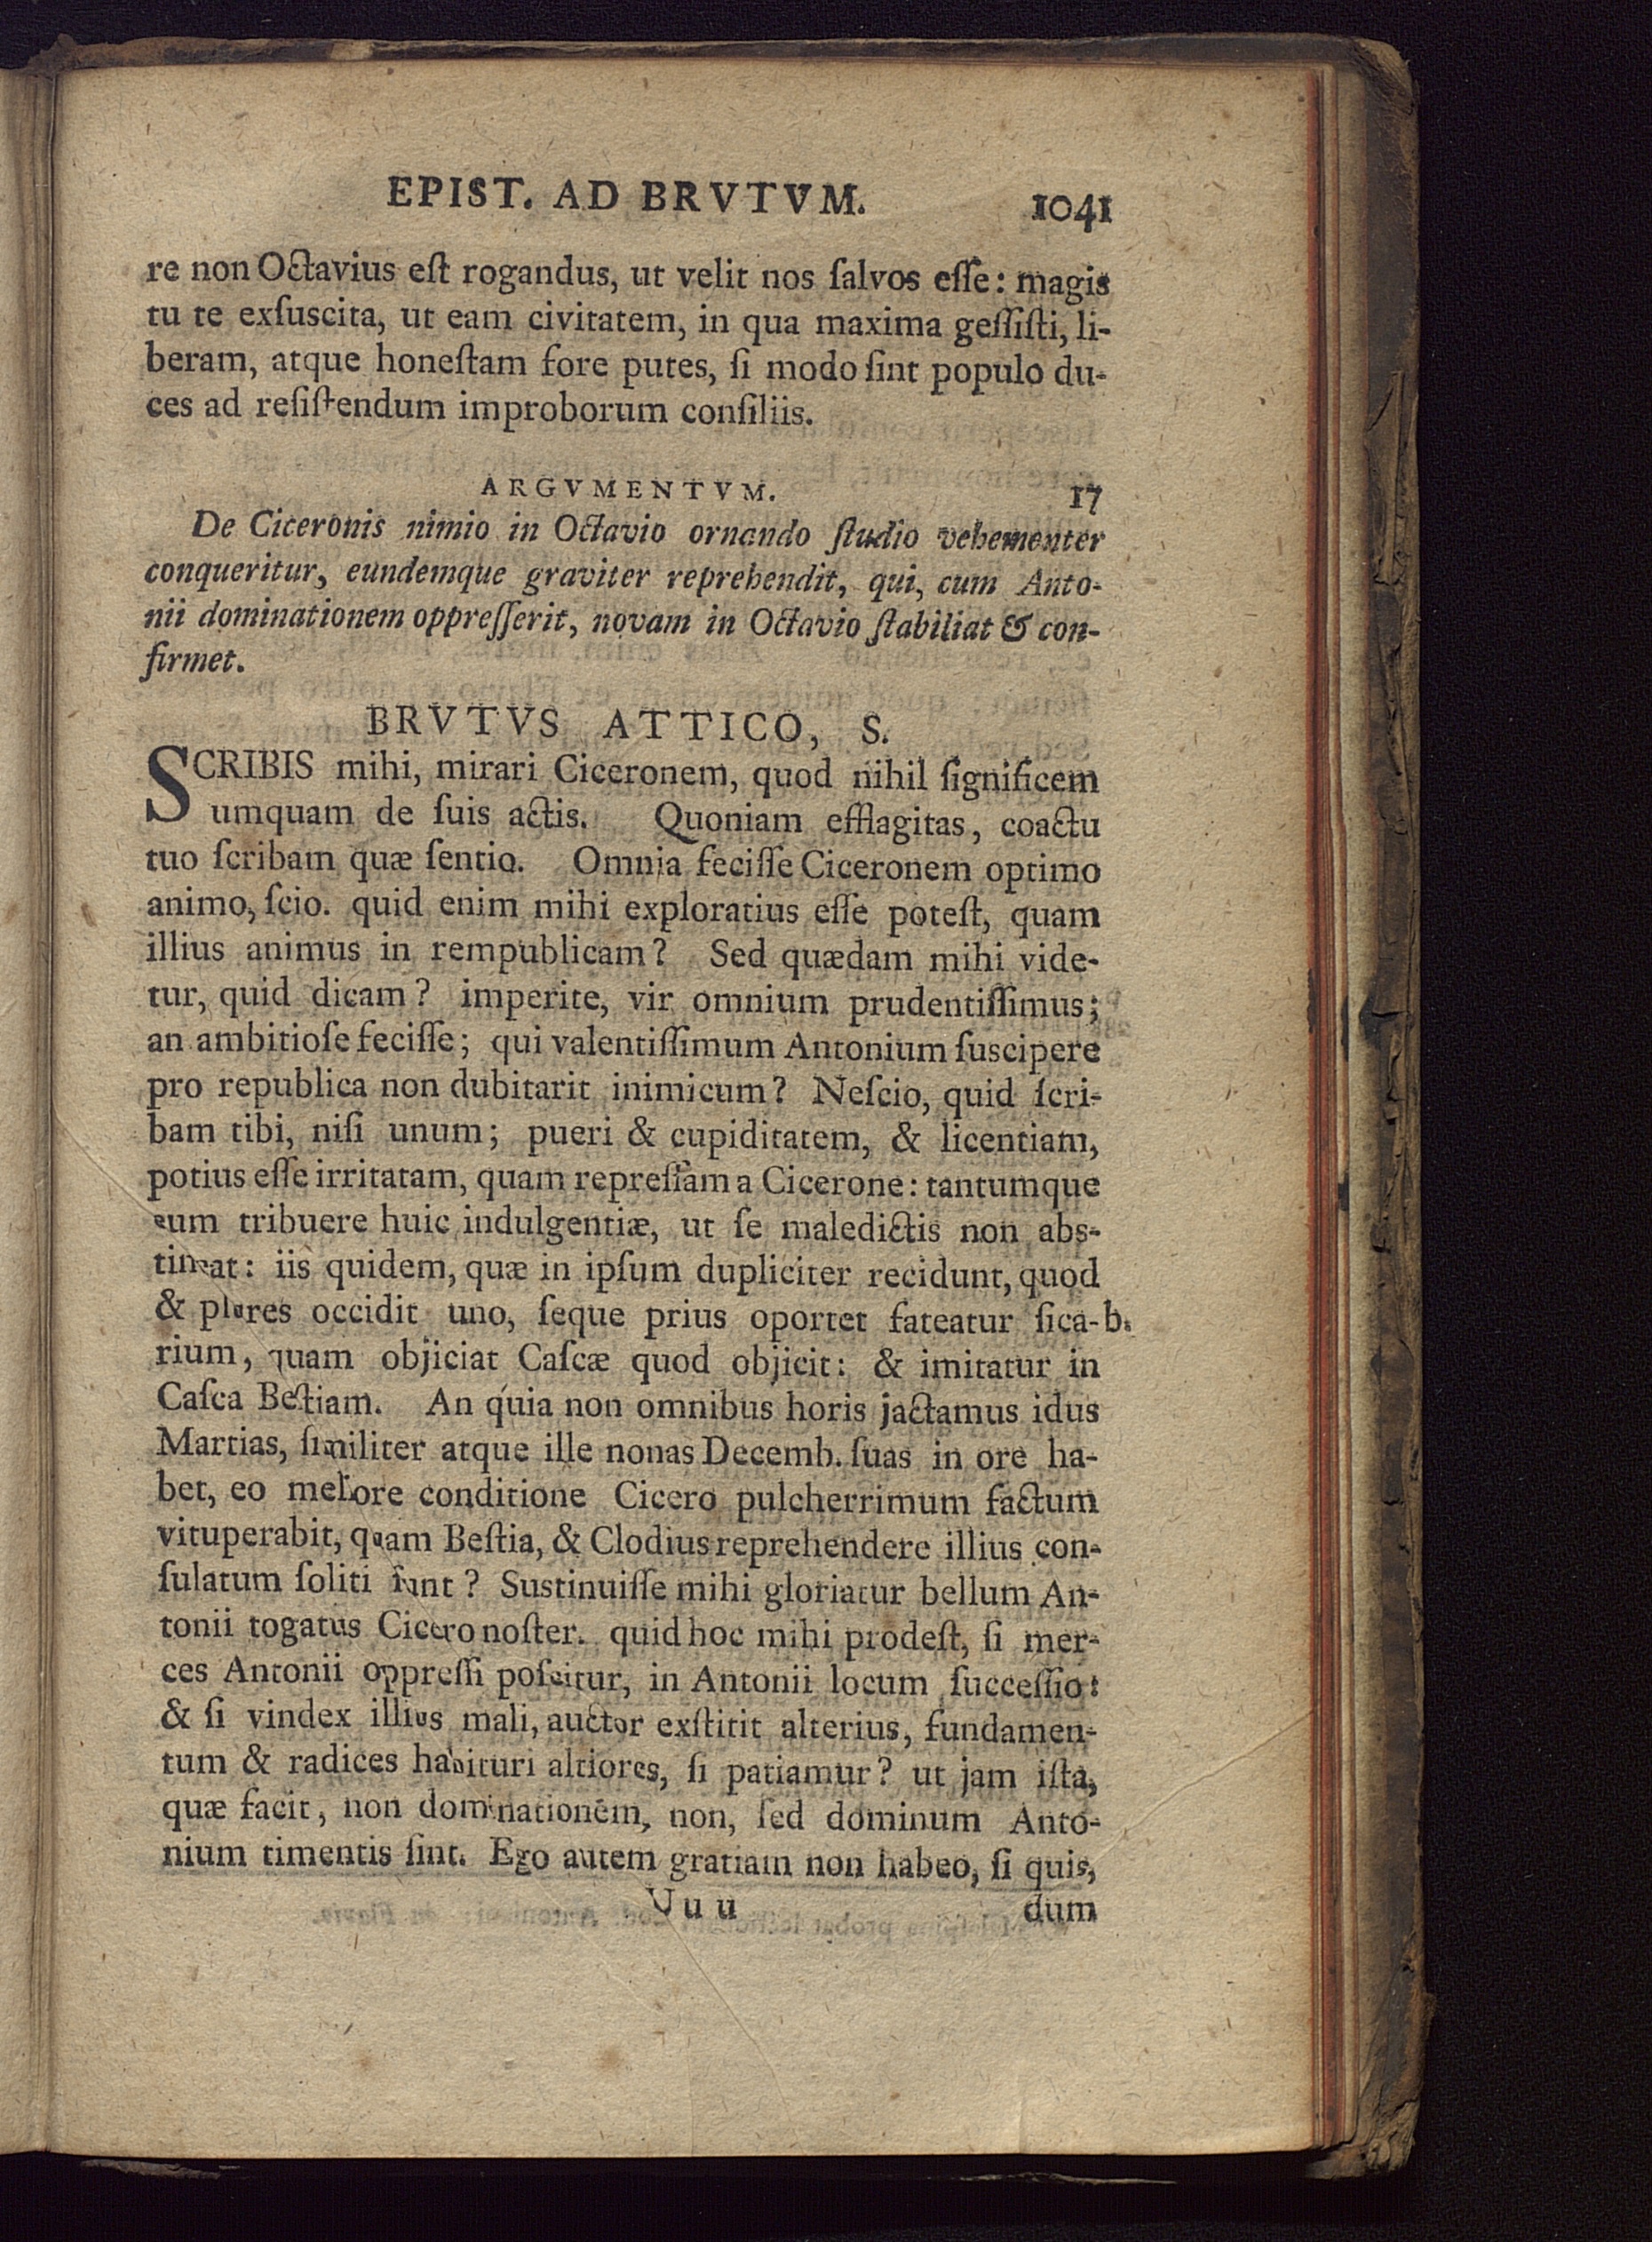 EPIST. AD BRVTVM. 1041
re non Octavius eſt rogandus, ut velit nos ſalvos eſſe: magis
tu te exſuscita, ut eam civitatem, in qua maxima geſſiſti, li-
beram, atque honeſtam fore putes, ſi modo ſint populo du-
ces ad reſiſtendum improborum conſiliis.
ARGVMENTVM. 17
De Ciceronis nimio in Octavio ornando ſtudio vehementer
conqueritur, eundemque graviter reprehendit, qui, cum Anto-
nii dominationem oppreſſerit, novam in Octavio ſtabiliat & con-
firmet.
BRVTVS ATTICO, S.
SCRIBIS mihi, mirari Ciceronem, quod nihil ſignificem
umquam de ſuis actis. Quoniam efflagitas, coactu
tuo ſcribam quæ ſentio. Omnia feciſſe Ciceronem optimo
animo, ſcio. quid enim mihi exploratius eſſe poteſt, quam
illius animus in rempublicam? Sed quædam mihi vide-
tur, quid dicam? imperite, vir omnium prudentiſſimus;
an ambitioſe feciſſe; qui valentiſſimum Antonium ſuscipere
pro republica non dubitarit inimicum? Neſcio, quid ſcri-
bam tibi, niſi unum; pueri & cupiditatem, & licentiam,
potius eſſe irritatam, quam repreſſam a Cicerone: tantumque
eum tribuere huic indulgentiæ, ut ſe maledictis non abs-
tineat: iis quidem, quæ in ipſum dupliciter recidunt, quod
& plures occidit uno, ſeque prius oportet fateatur ſica- b.
rium, quam objiciat Caſcæ quod objicit: & imitatur in
Caſca Beſtiam. An quia non omnibus horis jactamus idus
Martias, ſimiliter atque ille nonas Decemb. ſuas in ore ha-
bet, eo meliore conditione Cicero pulcherrimum factum
vituperabit, quam Beſtia, & Clodius reprehendere illius con-
ſulatum ſoliti ſunt? Sustinuiſſe mihi gloriatur bellum An-
tonii togatus Cicero noſter. quid hoc mihi prodeſt, ſi mer-
ces Antonii oppreſſi poſcitur, in Antonii locum ſucceſſio?
& ſi vindex illius mali, auctor exſtitit alterius, fundamen-
tum & radices habituri altiores, ſi patiamur? ut jam iſta,
quæ facit, non dominationem, non, ſed dominum Anto-
nium timentis ſint. Ego autem gratiam non habeo, ſi quis,
Vuu dum